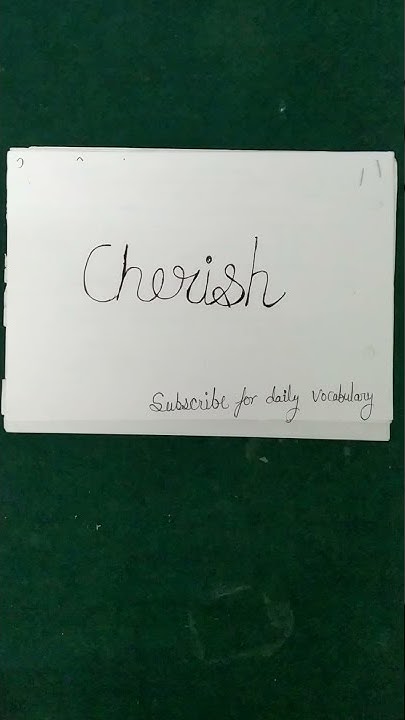 Cherish
Subscribe for daily vocabulary